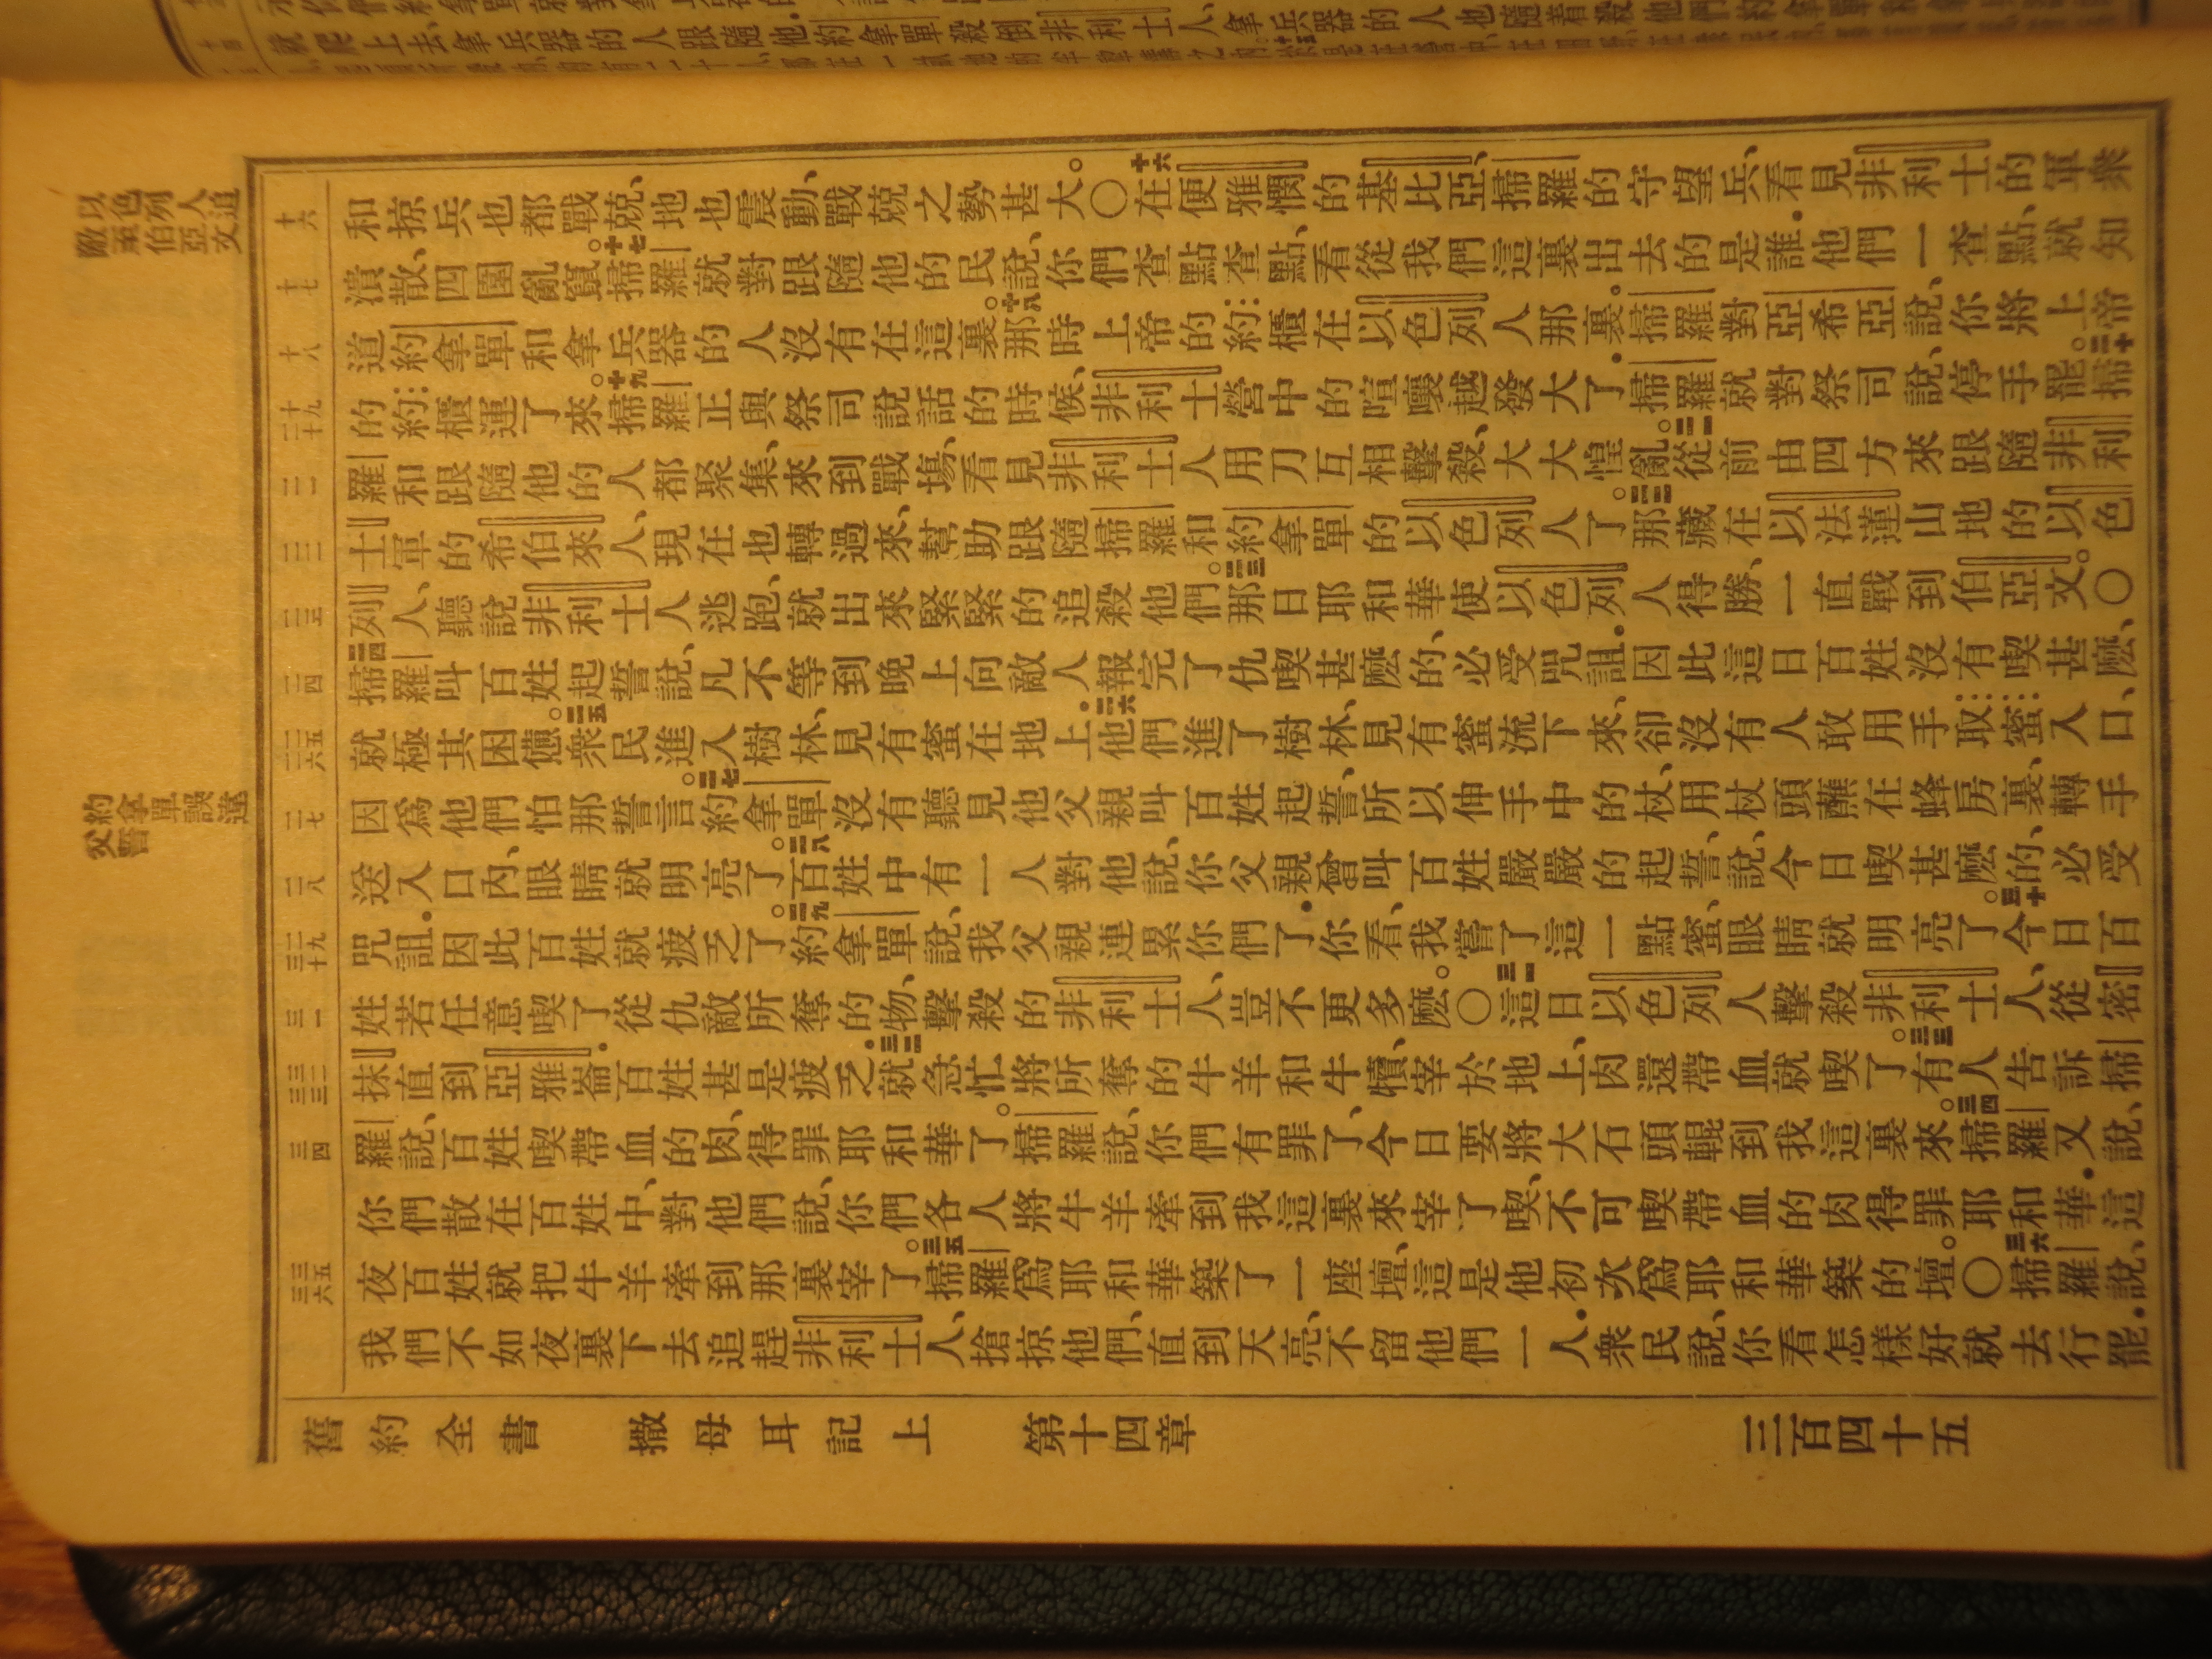 就爬上去、拿兵器的人跟隨他.約拿單殺倒非利士人、拿兵器的人也隨着殺
以色列人追敵至伯亞文
約拿單誤違父誓
十六
和掠兵也都戰兢、地也震動、戰兢之勢甚大。〇十六在便雅憫的基比亞、掃羅的守望兵、看見非利士的軍衆
十七
潰散、四圍亂竄。十七掃羅就對跟隨他的民說、你們查點查點、看從我們這裏出去的是誰.他們一查點、就知
十八
道約拿單和拿兵器的人沒有在這裏。十八那時上帝的約櫃在以色列人那裏。掃羅對亞希亞說、你將上帝
十九 二十
的約櫃運了來。十九掃羅正與祭司說話的時候、非利士營中的喧嚷越發大了.掃羅就對祭司說、停手罷。二十掃
二一
羅和跟隨他的人都聚集、來到戰塲、看見非利士人用刀互相擊殺、大大惶亂。二一從前由四方來跟隨非利
二二
士軍的希伯來人、現在也轉過來、幫助跟隨掃羅和約拿單的以色列人了。二二那藏在以法蓮山地的以色
二三
列人、聽說非利士人逃跑、就出來緊緊的追殺他們。二三那日耶和華使以色列人得勝、一直戰到伯亞文。〇
二四
二四掃羅叫百姓起誓說、凡不等到晚上向敵人報完了仇喫甚麽的、必受咒詛.因此這日百姓沒有喫甚麽、
二五 二六
就極其困憊。二五衆民進入樹林、見有蜜在地上.二六他們進了樹林、見有蜜流下來、卻沒有人敢用手取蜜入口、
二七
因爲他們怕那誓言。二七約拿單沒有聽見他父親叫百姓起誓、所以伸手中的杖、用杖頭蘸在蜂房裏、轉手
二八
送入口內、眼睛就明亮了。二八百姓中有一人對他說、你父親曾叫百姓嚴嚴的起誓、說、今日喫甚麽的、必受
二九 三十
咒詛.因此百姓就疲乏了。二九約拿單說、我父親連累你們了.你看、我嘗了這一點蜜、眼睛就明亮了。三十今日百
三一
姓若任意喫了從仇敵所奪的物、擊殺的非利士人、豈不更多麽。〇三一這日以色列人擊殺非利士人、從密
三二 三三
抹直到亞雅崙.百姓甚是疲乏.三二就急忙將所奪的牛羊和牛犢、宰於地上、肉還帶血就喫了。三三有人告訴掃
三四
羅說、百姓喫帶血的肉、得罪耶和華了。掃羅說、你們有罪了、今日要將大石頭輥到我這裏來。三四掃羅又說、
你們散在百姓中、對他們說、你們各人將牛羊牽到我這裏來宰了喫、不可喫帶血的肉得罪耶和華.這
三五 三六
夜百姓就把牛羊牽到那裏宰了。三五掃羅爲耶和華築了一座壇、這是他初次爲耶和華築的壇。〇三六掃羅說、
我們不如夜裏下去追趕非利士人、搶掠他們、直到天亮、不留他們一人.衆民說、你看怎樣好就去行罷.
舊約全書 撒母耳記上 第十四章 三百四十五